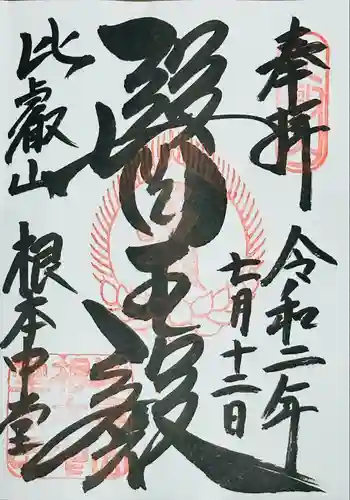 奉拝
令和二年
七月十二日
醫王殿
比叡山
根本中堂